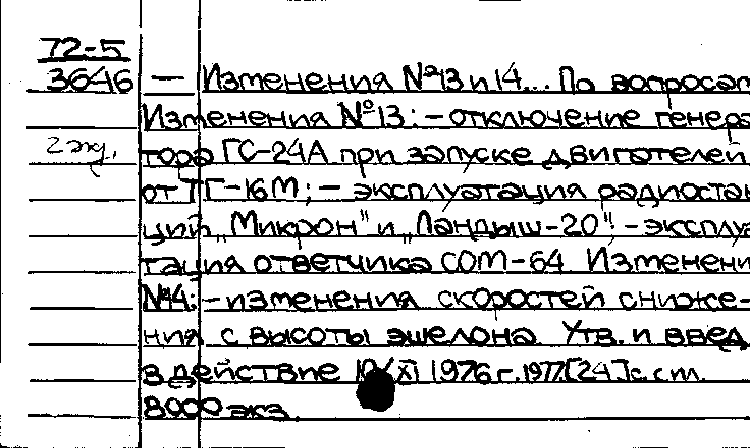 72-5
3646 — Изменения №13 и 14... По вопросам
Изменения №13: - отключение генера-
2 экз.
тора ГС-24А при запуске двигателей
от ТГ-16М; - эксплуатация радиостан
ций „Микрон" и „Ландыш-20"; - эксплуа
тация ответчика СОМ-64 Изменени
№14: - изменения скоростей сниже-
ния с высоты эшелона Утв. и введ
в действие /XI 1976 г. 1977. [24] с. с т.
8000 экз.